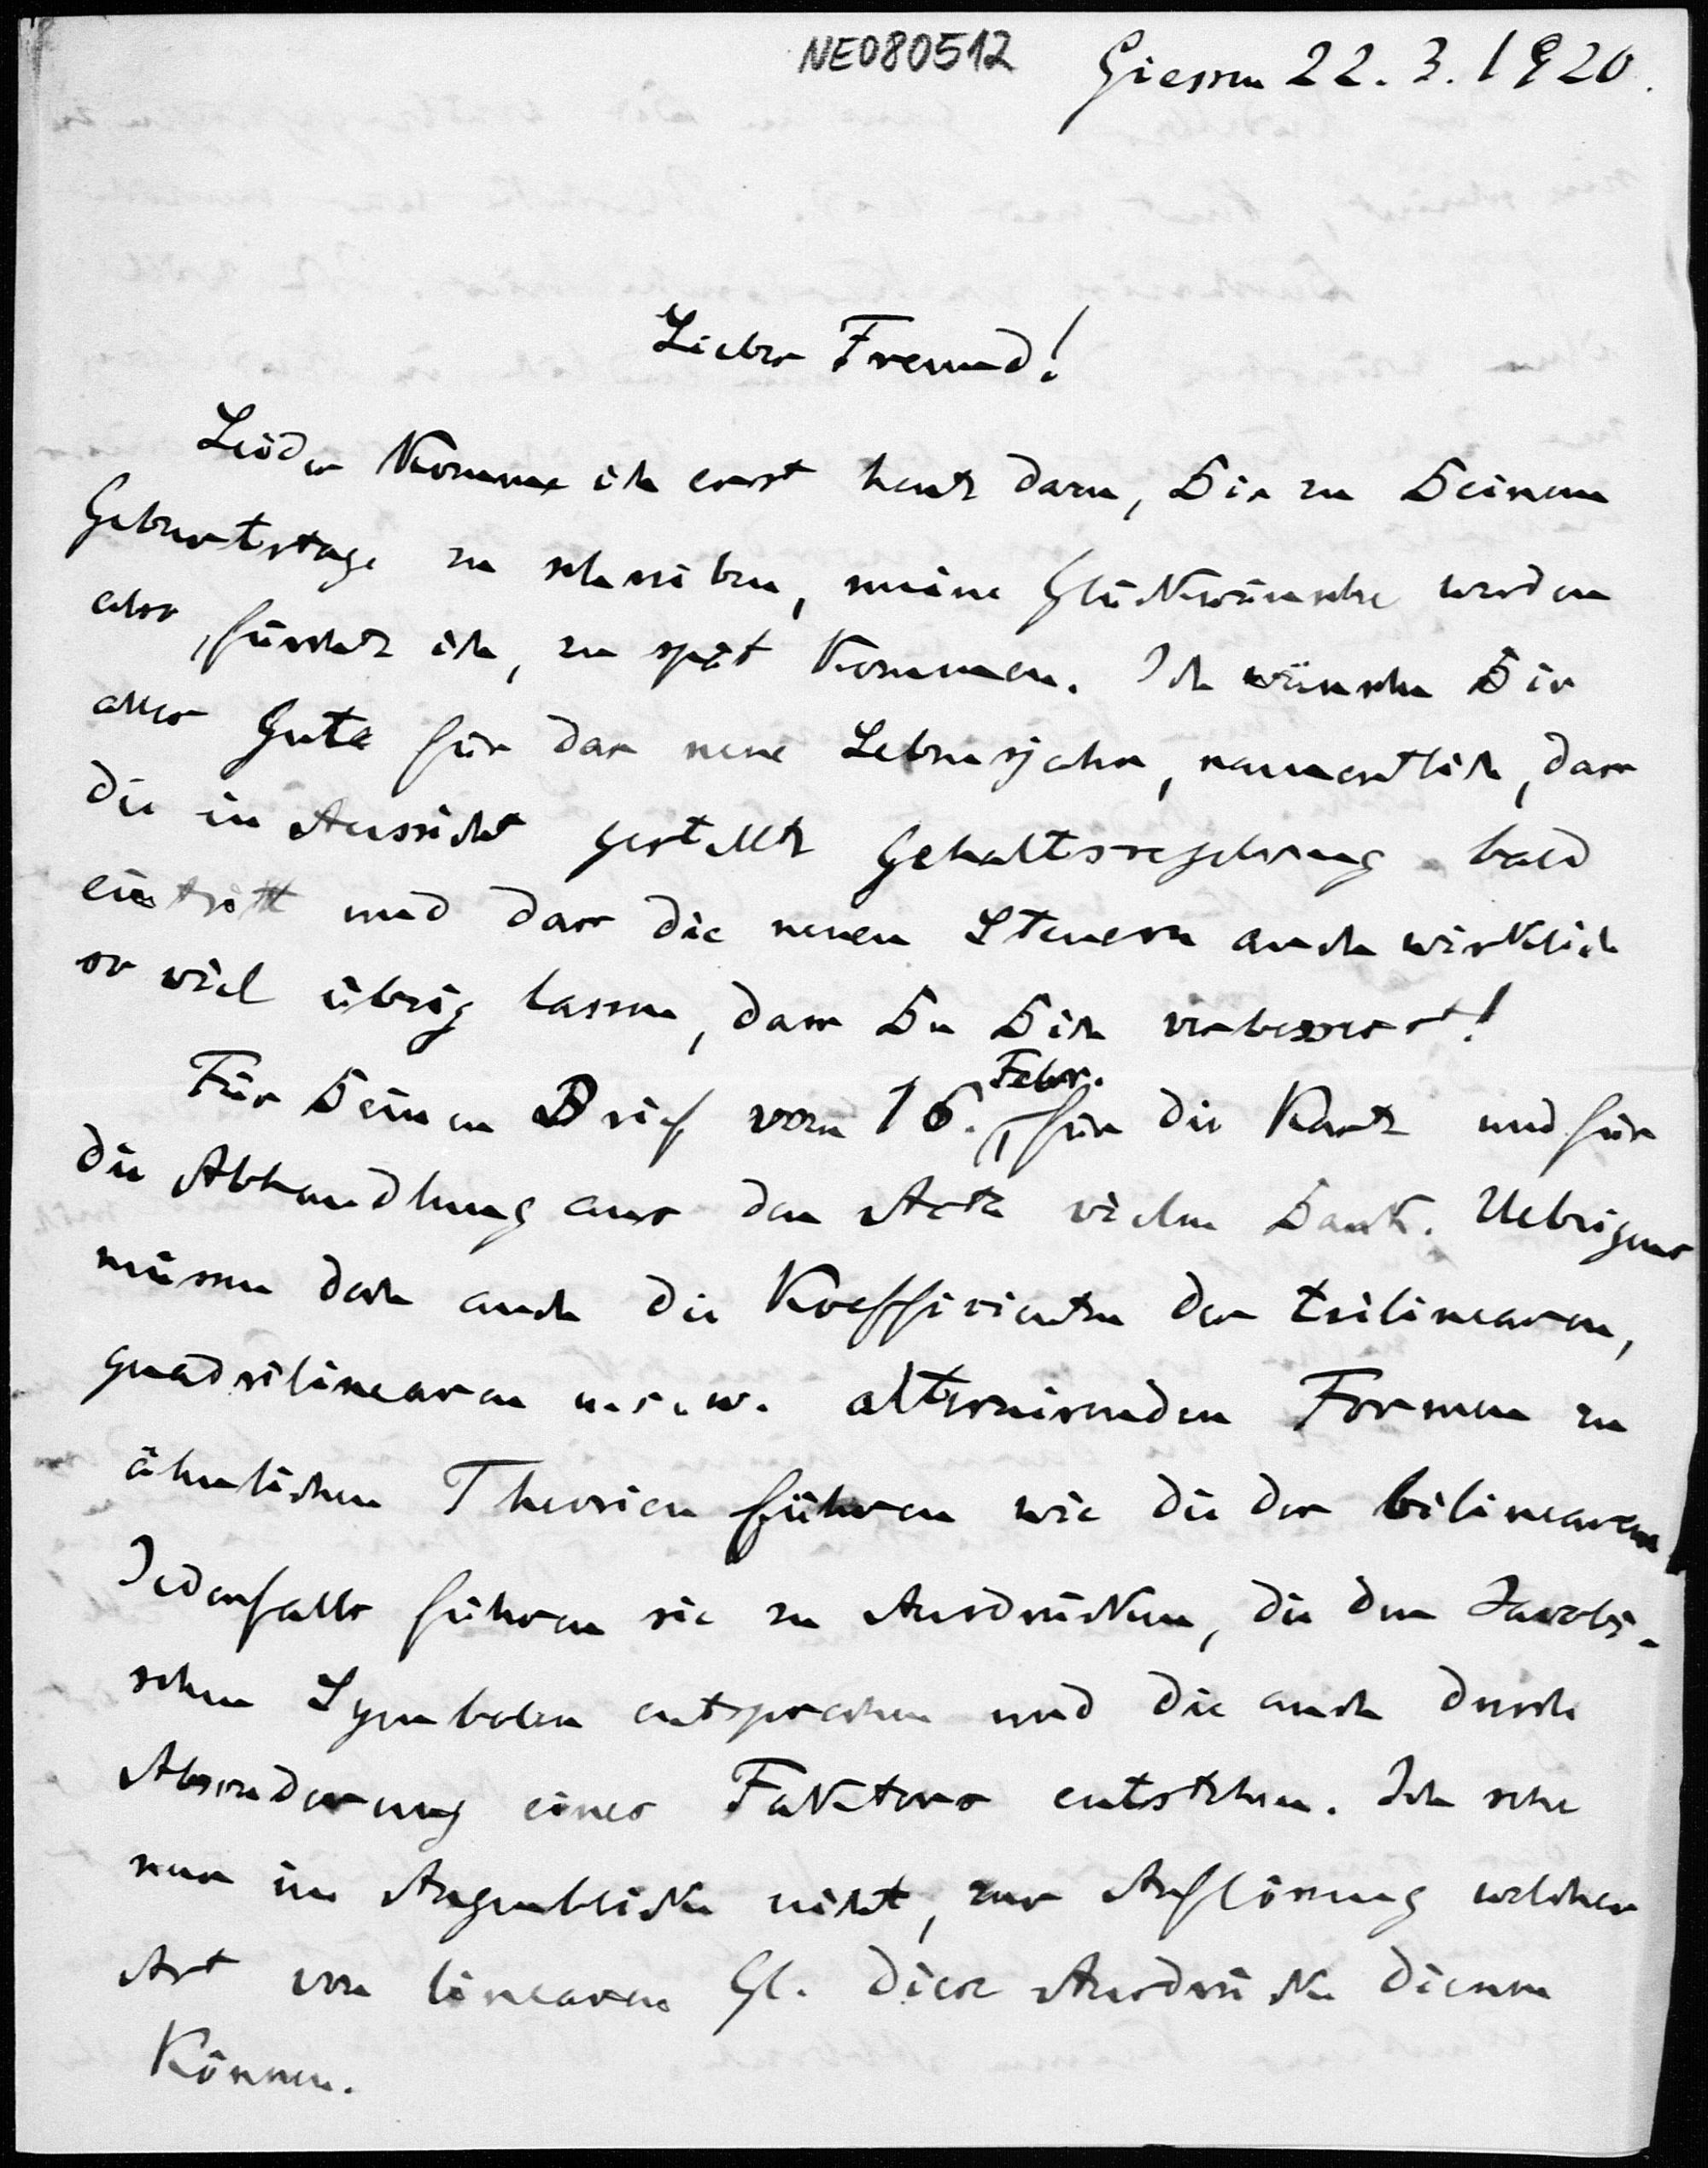 NE080512
Giessen 22.3.1920.
Lieber Freund!
Leider komme ich erst heute dazu, Dir zu Deinem
Geburtstage zu schreiben, meine Glückwünsche werden
also, fürchte ich, zu spät kommen. Ich wünsche Dir
alles Gute für das neue Lebensjahr, namentlich, dass
die in Aussicht gestellte Gehaltsregelung bald
eintritt und dass die neuen Steuern auch wirklich
so viel übrig lassen, dass Du Dich verbesserst!
Für Deinen Brief vom 16. Febr., für die Karte und für
die Abhandlung aus den Acta vielen Dank. Uebrigens
müssen doch auch die Koeffizienten der trilinearen,
quadrilinearen u.s.w. alternirenden Formen zu
ähnlichen Theorien führen wie die der bilinearen.
Jedenfalls führen sie zu Ausdrücken, die den Jacobi-
schen Symbolen entsprechen und die auch durch
Absonderung eines Faktors entstehen. Ich sehe
nur im Augenblicke nicht, zur Auflösung welcher
Art von linearen Gl. diese Ausdrücke dienen
können.